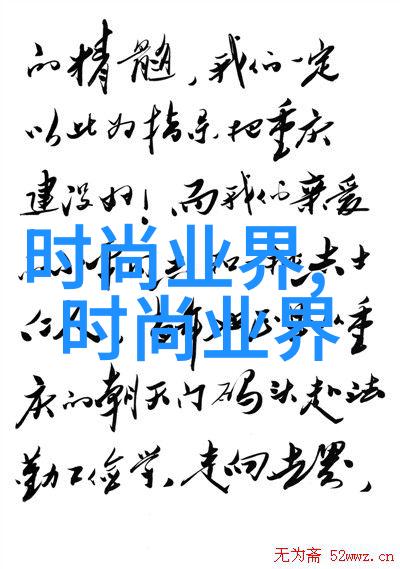 的精髓，我们一定
以此为指导把重庆
建设好！而我们亲爱
时尚业界,
时尚业界
志士
仁人
重
庆的朝天门码头赴法
勤工俭学，走向世界，
无为斋 52wwz.cn